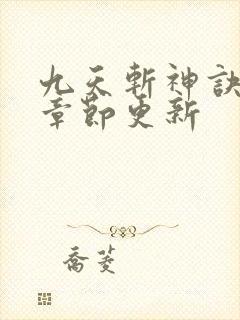 九天斬神訣
章節更新
喬菱